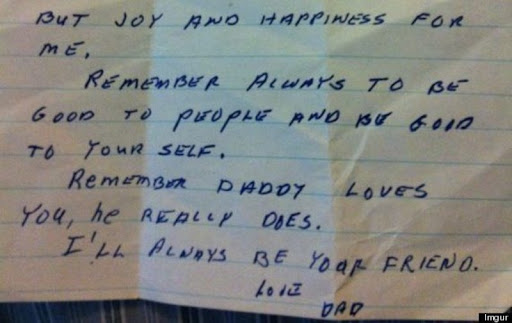 BUT JOY AND HAPPINESS FOR
ME.
REMEMBER ALWAYS TO BE
GOOD TO PEOPLE AND BE GOOD
TO YOUR SELF.
REMEMBER DADDY LOVES
YOU, he REALLY DOES.
I'LL ALWAYS BE YOUR FRIEND.
LOVE
DAD
Imgur